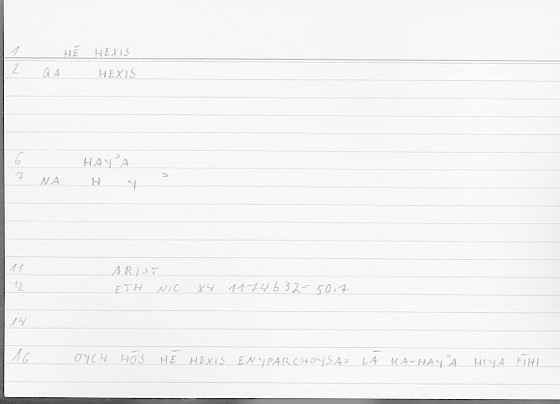 1 HĒ HEXIS
2 QA HEXIS
6 HAYʾA
7 NA H Y ʾ
11 ARIST
12 ETH NIC X4 1174B32-50,7
14
16 OYCH HŌS HĒ HEXIS ENYPARCHOYSA= LĀ KA-HAYʾA HIYA FĪHI